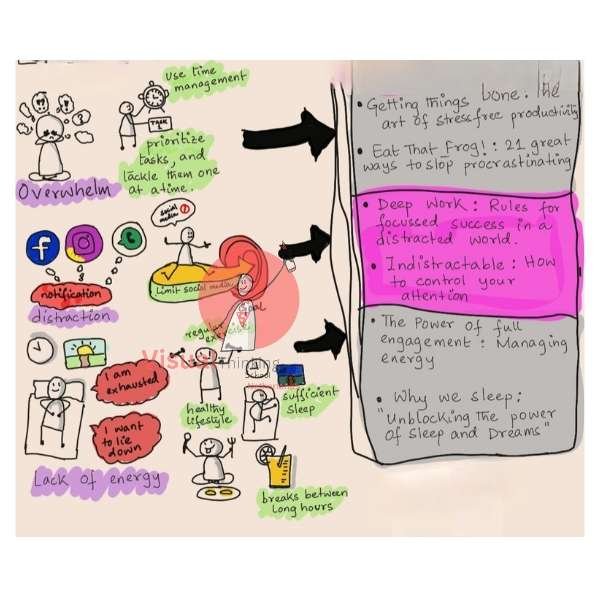 use time
management
TASK
prioritize
tasks, and
lackle them one
at a time.
Overwhelm
social
media
notification
distraction
Limit social media
Goal
regular exercise
I am
exhausted
I want
to lie
down
Lack of energy
healthy
lifestyle
sufficient
sleep
breaks between
long hours
Visual Thinking
School
• Getting things bone. The
art of stressfree productivity
• Eat That Frog! : 21 great
ways to slop procrastinating
• Deep Work : Rules for
focussed success in a
distracted world.
• Indistractable : How
to control your
attention
• The Power of full
engagement : Managing
energy
• Why we sleep :
"Unblocking the power
of Sleep and Dreams"